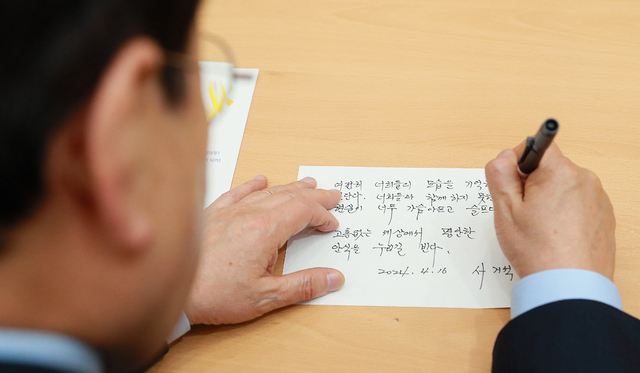 여전히 너희들의 모습을 기억
한단다. 너희들과 함께 하지 못한
현실이 너무 가슴아프고 슬프다
고통없는 세상에서 평안한
안식을 누리길 빈다.
2024. 4. 16 서거석